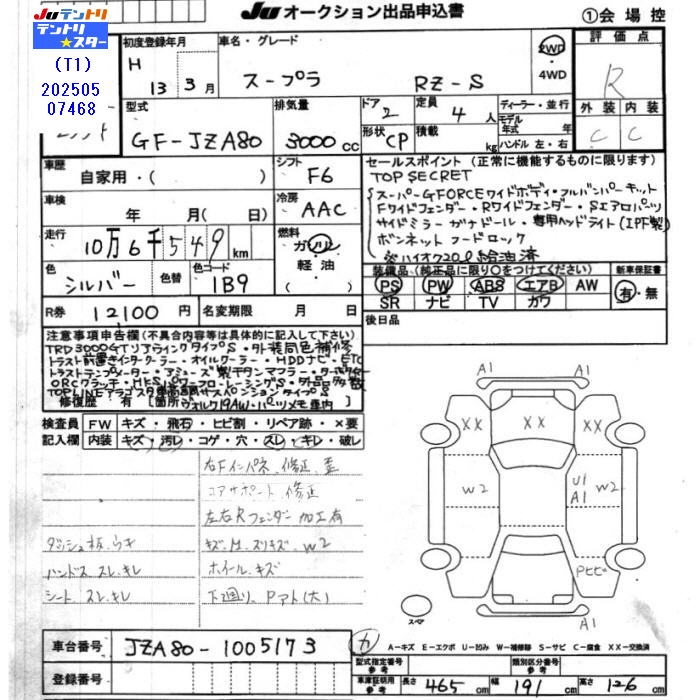 JUテントリ
テントリ★スター
(T1)
202505
07468
JU オークション出品申込書
①会場控
初度登録年月
H 13 3月
車名・グレード
スープラ RZ-S
2WD
・
4WD
評価点
R
外装 内装
C C
型式
GF-JZA80
排気量
3000cc
ドア 2
形状 CP
定員 4人
積載 kg
ディーラー・並行
モデル年式 年
ハンドル 左・右
車歴
自家用・( )
シフト
F6
車検
年 月( 日)
冷房
AAC
走行
10万6千549km
燃料
ガソリン
軽油
( )
色
シルバー
色替
色コード
1B9
R券 12100円
名変期限 月 日
セールスポイント (正常に機能するものに限ります)
TOP SECRET
スーパーGFORCEワイドボディ・フルバンパーキット
Fワイドフェンダー・Rワイドフェンダー・Sエアロパーツ
サイドミラー ガナドール・専用ヘッドライト(IPF製)
ボンネット フードロック
※ハイオク20ℓ給油済
装備品 (純正品に限り○をつけてください)
新車保証書
PS PW ABS エアB AW
有・無
SR ナビ TV カワ
後日品
注意事項申告欄(不具合内容等は具体的に記入して下さい)
TRD3000GTリアウイングタイプS・外装同色補修
トラスト前置きインタークーラー・オイルクーラー・HDDナビ・ETC
ORCクラッチ・HKSパワーフロー・レーシングS・外品多数
修復歴 有 [箇所]
検査員 FW キズ・飛石・ヒビ割・リペア跡・×要
記入欄 内装 キズ・汚レ・コゲ・穴・スレ・キレ・破レ
右Fインパネ、修正、歪
コアサポート 修正
左右Rフェンダー 加工有
ダッシュ板、ウキ
キズ、M、スリキズ、W2
ハンドスレ、キレ
ホイール、キズ
シート、スレ、キレ
下廻り、Pアト(大)
A1
XX XX
W2 U1 A1 W2
Pヒビ
A1
スペア
車台番号 JZA80-1005173
カ
A―キズ E―エクボ U―凹み W―補修跡 S―サビ C―腐食 XX―交換済
登録番号
型式指定番号
参考
類別区分番号
参考
車庫証明用
参考
長さ 465cm 幅 191cm 高さ 126cm